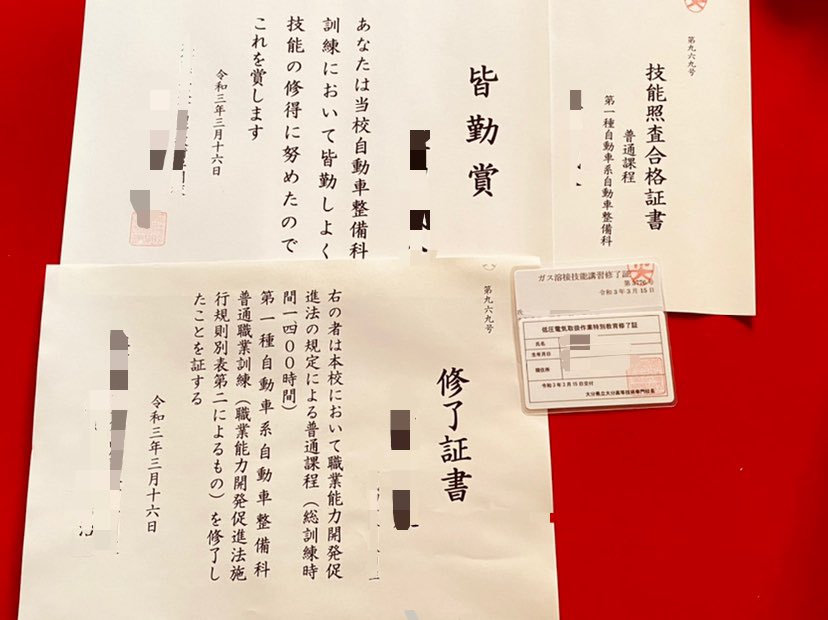 皆勤賞
あなたは当校自動車整備科
訓練において皆勤しよく
技能の修得に努めたので
これを賞します
令和三年三月十六日
第九六九号
技能照査合格証書
普通課程
第一種自動車系自動車整備科
第九六九号
修了証書
右の者は本校において職業能力開発促
進法の規定による普通課程（総訓練時
間一四〇〇時間）
第一種自動車系自動車整備科
普通職業訓練（職業能力開発促進法施
行規則別表第二によるもの）を修了し
たことを証する
令和三年三月十六日
ガス溶接技能講習修了証
令和3年3月15日
低圧電気取扱作業特別教育修了証
氏名
生年月日
現住所
令和3年3月15日交付
大分県立大分高等技術専門校長